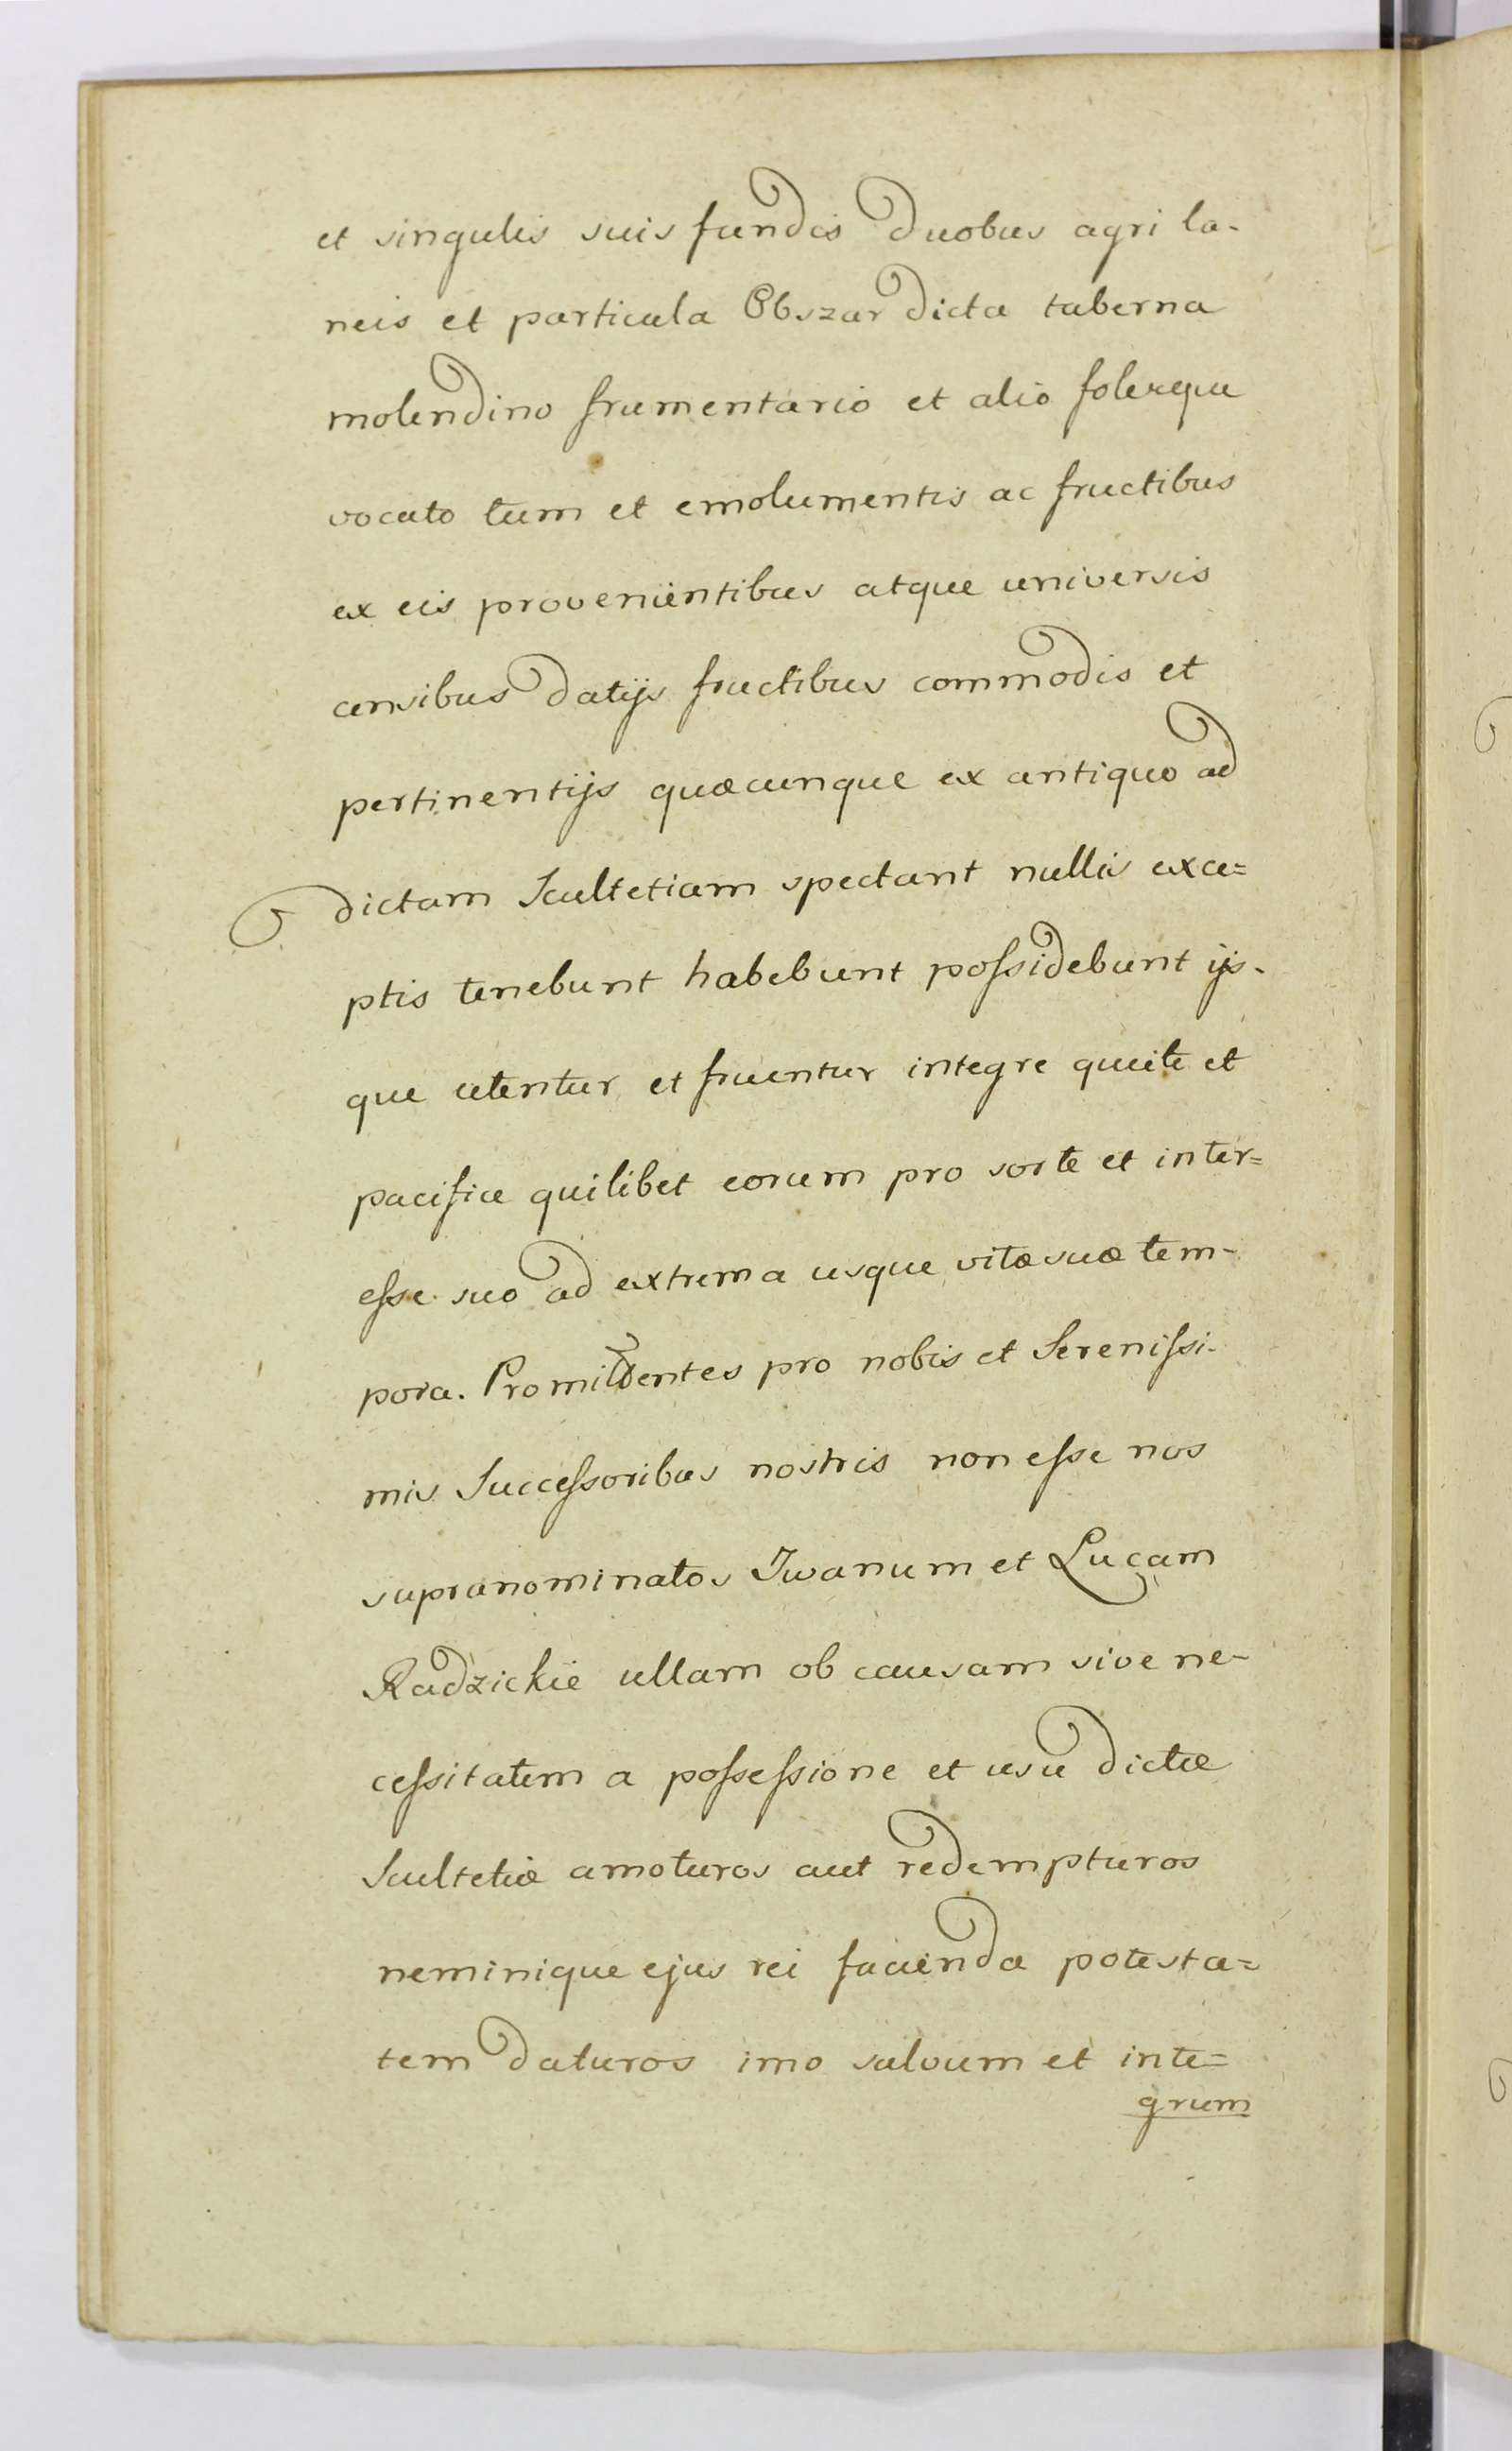 et singulis suis fundis duobus agri la-
neis et particula Obszar dicta taberna
molendino frumentario et alio folusque
vocato tum et emolumentis ac fructibus
ex eis provenientibus atque universis
censibus datijs fructibus commodis et
pertinentijs quæcunque ex antiquo ad
dictam Scultetiam spectant nullis exce=
ptis tenebunt habebunt poſsidebunt ijs-
que utentur et fruentur integre quiete et
pacifice quilibet eorum pro sorte et inter=
eſse suo ad extrema usque vitæ suæ tem-
pora. Promittentes pro nobis et Sereniſsi-
mis Succeſsoribus nostris non eſse nos
supranominatos Iwanum et Lucam
Radzickie ullam ob causam sive ne-
ceſsitatem a poſseſsione et usu dictæ
Scultetiæ amoturos aut redempturos
neminique ejus rei facienda potesta=
tem daturos imo salvum et inte=
grum